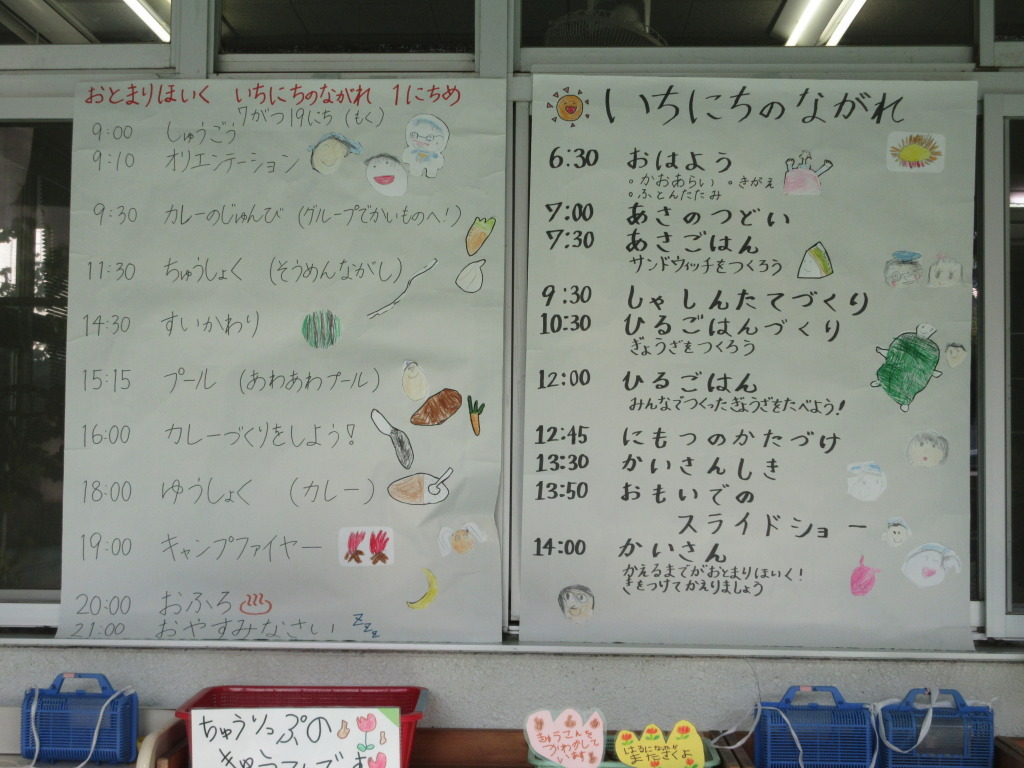 おとまりほいく いちにちのながれ 1にちめ
7がつ19にち(もく)
9:00 しゅうごう
9:10 オリエンテーション
9:30 カレーのじゅんび (グループでかいものへ!)
11:30 ちゅうしょく (そうめんながし)
14:30 すいかわり
15:15 プール (あわあわプール)
16:00 カレーづくりをしよう!
18:00 ゆうしょく (カレー)
19:00 キャンプファイヤー
20:00 おふろ
21:00 おやすみなさい zzz
いちにちのながれ
6:30 おはよう
。かおあらい 。きがえ
。ふとんたたみ
7:00 あさのつどい
7:30 あさごはん
サンドウィッチをつくろう
9:30 しゃしんたてづくり
10:30 ひるごはんづくり
ぎょうざをつくろう
12:00 ひるごはん
みんなでつくったぎょうざをたべよう!
12:45 にもつのかたづけ
13:30 かいさんしき
13:50 おもいでの
スライドショー
14:00 かいさん
かえるまでがおとまりほいく!
きをつけてかえりましょう
ちゅうりっぷの
きゅうこんです
はるになったら
またさくよ